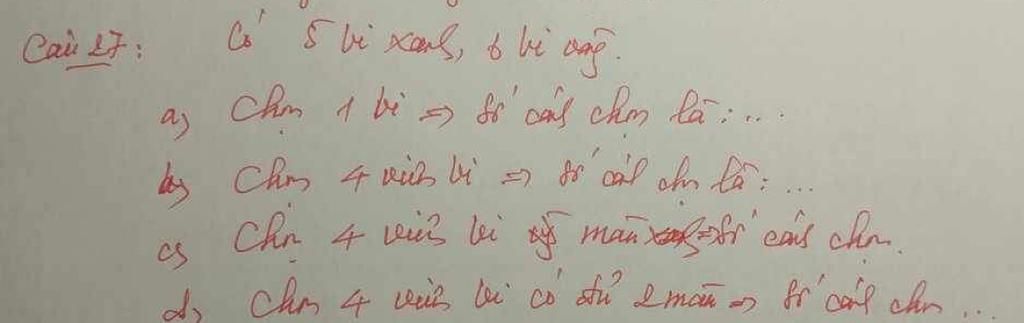 Câu 27: Có 5 bi xanh, 6 bi vàng.
a, Chọn 1 bi => Số cách chọn là: ...
b, Chọn 4 viên bi => số cách chọn là: ...
c, Chọn 4 viên bi màu => Số cách chọn.
d, Chọn 4 viên bi có đủ 2 màu => Số cách chọn ...